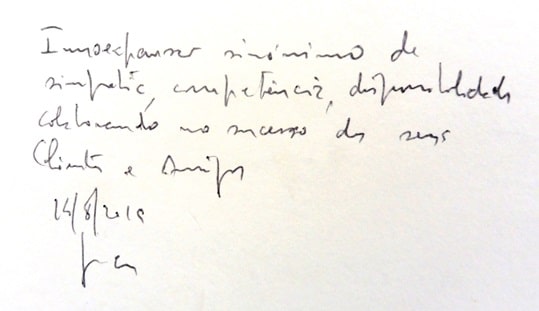 Imoexpanser sinónimo de
simpatia, competência, disponibilidade
colaborando no sucesso dos seus
Clientes e Amigos
14/8/2019